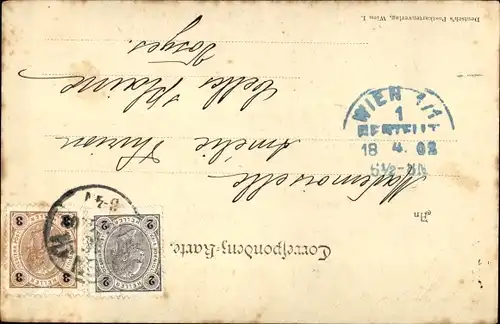 Correspondenz-Karte.
An
Mademoiselle
Amélie Thirion
Celles s/Plaine
Vosges.
Deutsch's Postkartenverlag, Wien I.
WIEN 1/1
1
BESTELLT
18 4 02
6½-8N
3 3
3 3
2 2
2 2
HELLER
HELLER